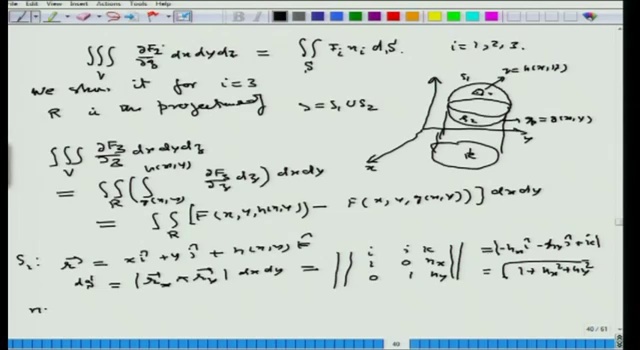 ∭_V ∂F_i/∂z dx dy dz = ∬_S F_i n_i dS. i = 1, 2, 3.
We show it for i = 3
R is the projection of S = S₁ ∪ S₂
S₁ z = h(x,y)
S₂ z = g(x,y)
R
x y
∭_V ∂F₃/∂z dx dy dz
= ∬_R (∫_{g(x,y)}^{h(x,y)} ∂F₃/∂z dz) dx dy
= ∬_R [F(x, y, h(x,y)) − F(x, y, g(x,y))] dx dy
S₁: r⃗ = x î + y ĵ + h(x,y) k̂
dS = |r⃗_x × r⃗_y| dx dy = || i j k ; 1 0 h_x ; 0 1 h_y || = |-h_x î - h_y ĵ + k̂|
= √(1 + h_x² + h_y²)
n.
40 / 61
40